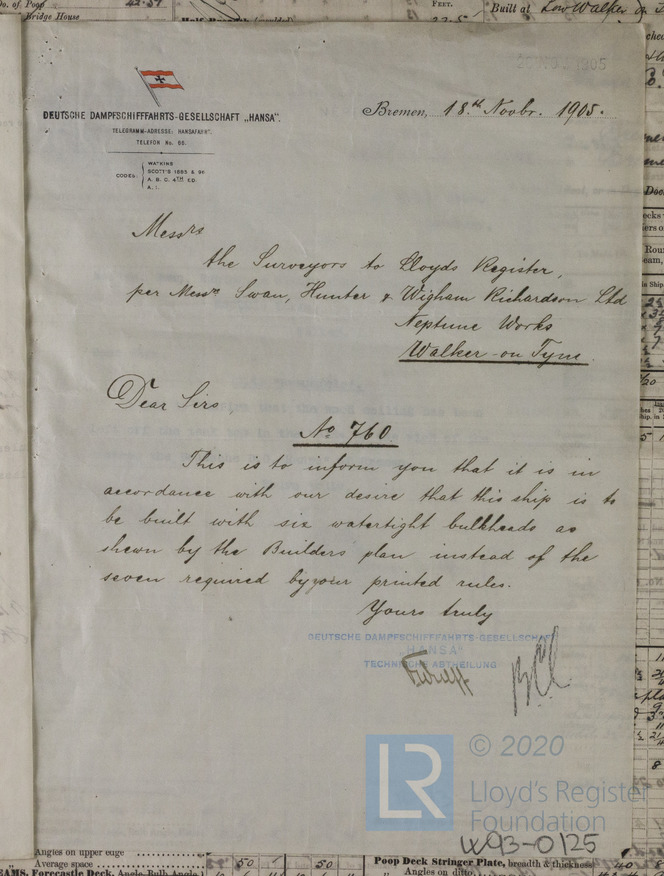 No. of Poop
Bridge House
FEET.
Built at Low Walker
1905
DEUTSCHE DAMPFSCHIFFFAHRTS-GESELLSCHAFT „HANSA“.
TELEGRAMM-ADRESSE: HANSAFAHRT.
TELEFON No. 66.
CODES:
WATKINS
SCOTT'S 1885 & 96
A. B. C. 4TH ED.
A. I.
Bremen, 18.th Novbr. 1905.
Messrs
the Surveyors to Lloyds Register,
per Messrs Swan, Hunter & Wigham Richardson Ltd
Neptune Works
Walker-on Tyne
Dear Sirs
No 760
This is to inform you that it is in
accordance with our desire that this ship is to
be built with six watertight bulkheads as
shewn by the Builders plan instead of the
seven required by your printed rules.
Yours truly
DEUTSCHE DAMPFSCHIFFFAHRTS-GESELLSCHAFT
„HANSA“
TECHNISCHE ABTHEILUNG
LR
© 2020
Lloyd's Register
Foundation
W93-0125
Angles on upper edge
Average space
50
50
Forecastle Deck, Angle Bulb Angle
Poop Deck Stringer Plate, breadth & thickness
Angles on ditto